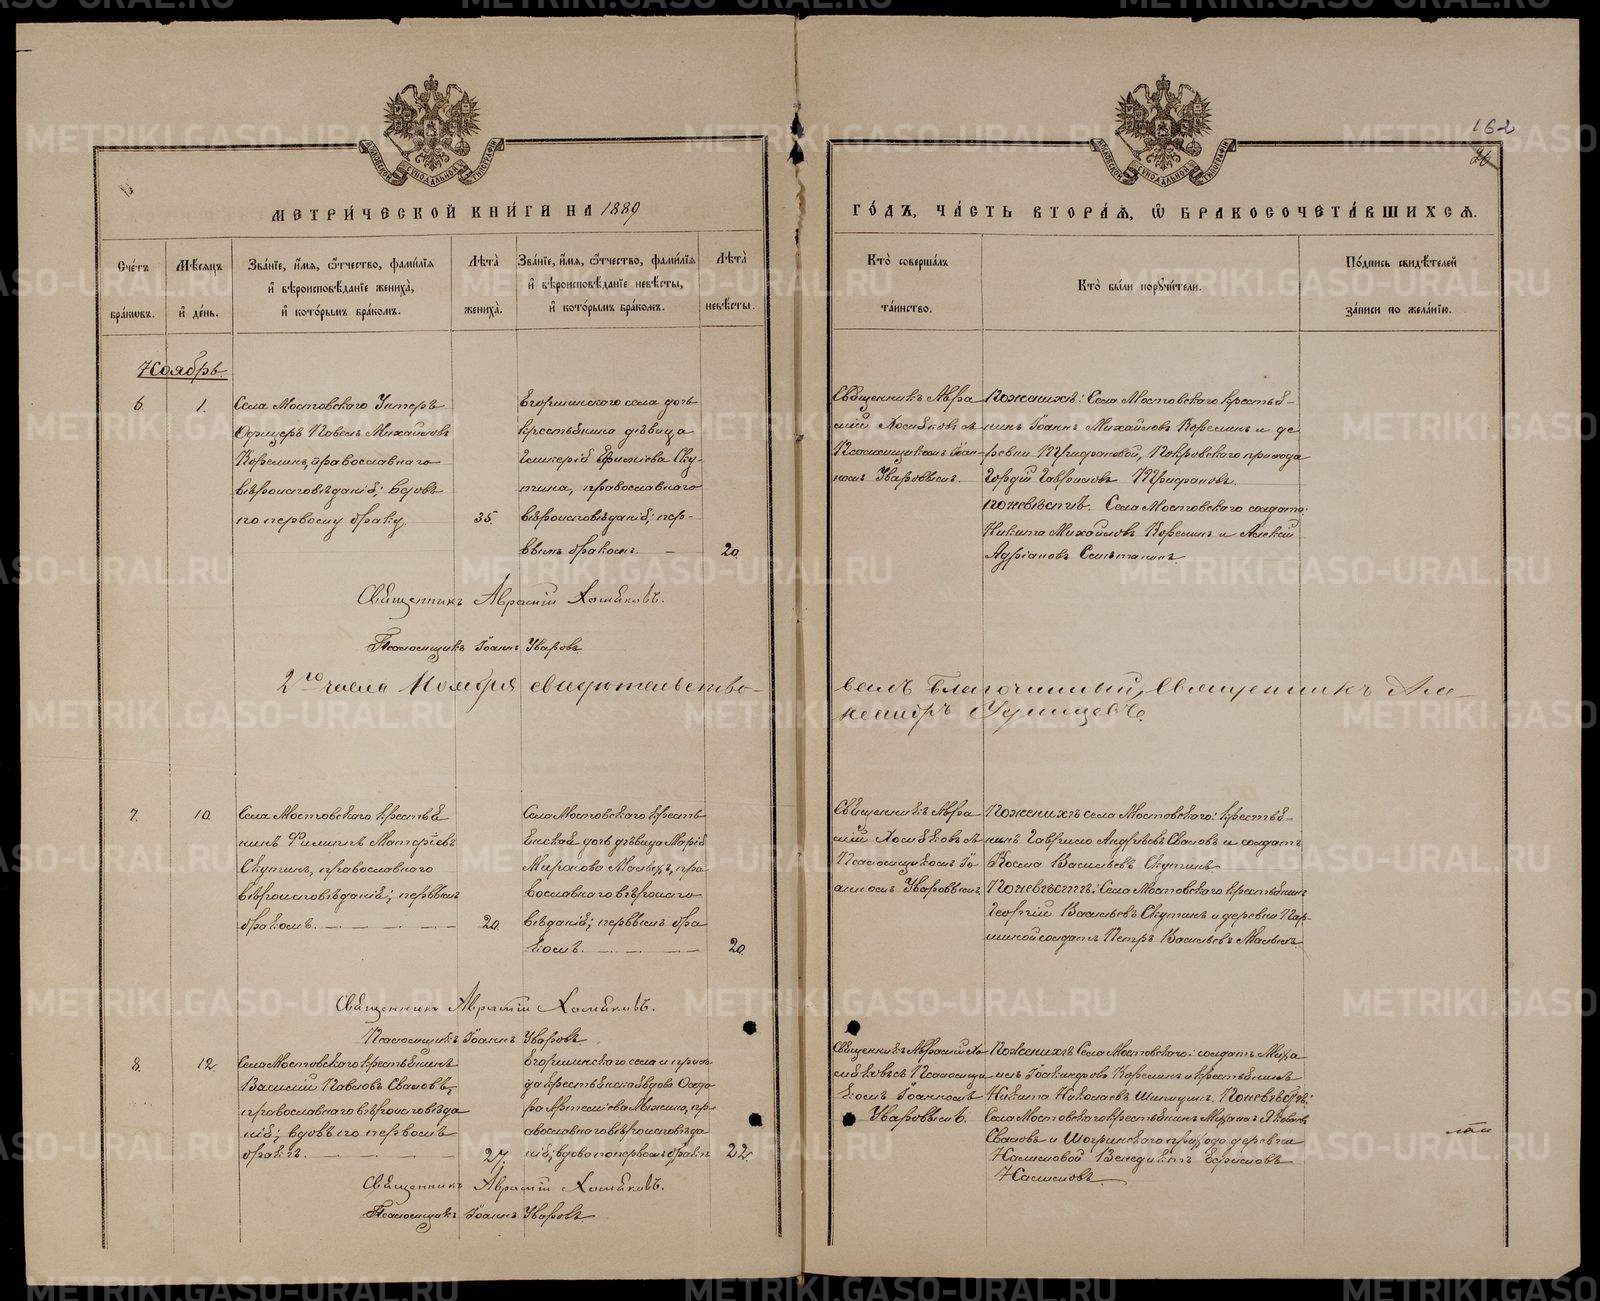 МЕТРИЧЕСКОЙ КНИГИ НА 1889
ГОДЪ, ЧАСТЬ ВТОРАЯ, Ѡ БРАКОСОЧЕТАВШИХСЯ.
162
26
Счетъ браковъ.
Мѣсяцъ и день.
Званіе, имя, ѿтчество, фамилія
и вѣроисповѣданіе жениха,
и которымъ бракомъ.
Лѣта жениха.
Званіе, имя, ѿтчество, фамилія
и вѣроисповѣданіе невѣсты,
и которымъ бракомъ.
Лѣта невѣсты.
Кто совершалъ
таинство.
Кто были поручители.
Подпись свидѣтелей
записи по желанію.
Ноябрь
6.
1.
Села Мостовскаго Унтеръ
Офицеръ Павелъ Михайловъ
Корелинъ, православнаго
вѣроисповѣданія; вдовъ
по первому браку.
35.
Егоршинскаго села дочь
крестьянина дѣвица
Гликерія Ску-
тина, православнаго
вѣроисповѣданія; пер-
вымъ бракомъ.
20.
Священникъ Авра
амій Хомяковъ съ
Псаломщикомъ Іоан-
номъ Уваровымъ.
По женихѣ: Села Мостовскаго крестья-
нинъ Іоаннъ Михайловъ Корелинъ и де
ревни Трифановой, Покровскаго прихода
Гордій Гавриловъ Трифановъ.
По невѣстѣ. Села Мостовскаго солдатъ:
Никита Михайловъ Корелинъ и Алексій
Адріановъ
Священникъ Аврамій Хомяковъ.
Псаломщикъ Іоаннъ Уваровъ
2го числа Ноября свидѣтельство-
валъ Благочинный, Священникъ Але-
ксандръ
7.
10.
Села Мостовскаго крестья
нинъ Филиппъ
Скутинъ, православнаго
вѣроисповѣданія; первымъ
бракомъ.
20.
Села Мостовскаго кресть
янская дочь дѣвица Марія
Миронова пра
вославнаго вѣроиспо
вѣданія; первымъ бра
комъ.
20.
Священникъ Авра
амій Хомяковъ съ
Псаломщикомъ Іо
анномъ Уваровымъ
По женихѣ села Мостовскаго: крестья-
нинъ Гаврило Андреевъ и солдатъ
Косма Васильевъ Скутинъ
По невѣстѣ: Села Мостовскаго крестьянинъ
Георгій Васильевъ Скутинъ и деревни Пар-
шиной солдатъ Петръ Васильевъ
Священникъ Аврамій Хомяковъ.
Псаломщикъ Іоаннъ Уваровъ
8.
12.
Села Мостовскаго крестьянинъ
Василій Павловъ
православнаго вѣроисповѣда
нія; вдовъ по первомъ
бракѣ.
27.
Егоршинскаго села и прихо
да крестьянская вдова Ѳеодо
ра Артеміева пр
авославнаго вѣроисповѣда
нія; вдова по первомъ бракѣ
22.
Священникъ Аврамій Хо
мяковъ съ Псаломщи
комъ Іоанномъ
Уваровымъ.
По женихѣ Села Мостовскаго: солдатъ
Корелинъ и крестьянинъ
Никита Николаевъ По невѣстѣ:
Села Мостовскаго крестьянинъ
и Шогринскаго прихода деревни
Священникъ Аврамій Хомяковъ.
Псаломщикъ Іоаннъ Уваровъ
METRIKI.GASO-URAL.RU